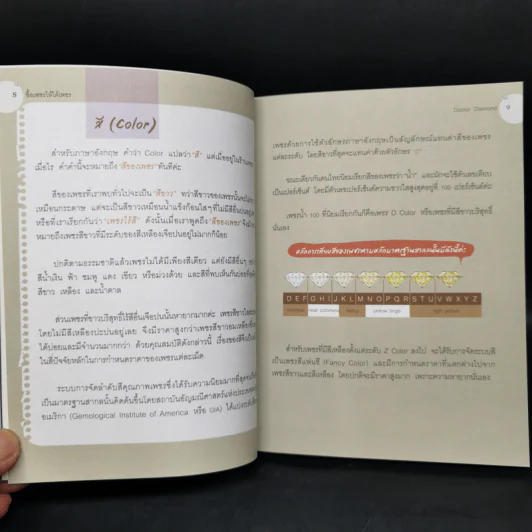 8 ซื้อเพชรให้ได้เพชร
สี (Color)
สำหรับภาษาอังกฤษ คำว่า Color แปลว่า "สี" แต่เมื่ออยู่ในร้านเพชร
เมื่อไร คำคำนี้จะหมายถึง "สีของเพชร" ทันทีค่ะ
สีของเพชรที่เราพบทั่วไปจะเป็น "สีขาว" ทว่าสีขาวของเพชรนั้นจะไม่ขาว
เหมือนกระดาษ แต่จะเป็นสีขาวเหมือนน้ำแข็งก้อนใสๆ ที่ไม่มีสีอื่นปนอยู่
หรือที่เราเรียกกันว่า "เพชรไร้สี" ดังนั้นเมื่อเราพูดถึง "สีของเพชร" จึง
หมายถึงเพชรสีขาวที่มีระดับของสีเหลืองเจือปนอยู่ไม่มากก็น้อย
ปกติตามธรรมชาติแล้วเพชรไม่ได้มีเพียงสีเดียว แต่ยังมีสีอื่นๆ
สีน้ำเงิน ฟ้า ชมพู แดง เขียว หรือม่วงด้วย และสีที่พบเห็นกันบ่อย
สีขาว เหลือง และน้ำตาล
ส่วนเพชรที่ขาวบริสุทธิ์ไร้สีอื่นเจือปนนั้นหายากมากค่ะ เพชรสีขาว
โดยไม่มีสีเหลืองปะปนอยู่เลย จึงมีราคาสูงกว่าเพชรสีขาวอมเหลือง
ได้บ่อยและมีจำนวนมากกว่า ด้วยคุณสมบัติดังกล่าวนี้ เรื่องของสีจึง
ในสี่ปัจจัยหลักในการกำหนดราคาของเพชรแต่ละเม็ด
ระบบการจัดลำดับสีคุณภาพเพชรซึ่งได้รับความนิยมมากที่สุด
เป็นมาตรฐานสากลนั้นคิดค้นขึ้นโดยสถาบันอัญมณีศาสตร์แห่งประเทศ
อเมริกา (Gemological Institute of America หรือ GIA) ได้แบ่งระดับ
Doctor Diamond 9
เพชรด้วยการใช้ตัวอักษรภาษาอังกฤษเป็นสัญลักษณ์แทนค่าสีของเพชร
แต่ละระดับ โดยสีขาวที่สุดจะแทนค่าด้วยตัวอักษร
ขณะเดียวกันคนไทยนิยมเรียกสีของเพชรว่า "น้ำ" และมักจะใช้ตัวเลขเทียบ
เป็นเปอร์เซ็นต์ โดยมีตัวเลขเปอร์เซ็นต์ความขาวใสสูงสุดอยู่ที่ 100 เปอร์เซ็นต์ค่ะ
เพชรน้ำ 100 ที่นิยมเรียกกันก็คือเพชร D Color หรือเพชรที่มีสีขาวบริสุทธิ์
นั่นเอง
หลักการเทียบสีของเพชรตามหลักมาตรฐานสากลนั้นมีดังนี้ค่ะ
D E F G H I J K L M N O P Q R S T U V W X Y Z
colorless near colorless faint yellow tinge light yellow
สำหรับเพชรที่มีสีเหลืองตั้งแต่ระดับ Z Color ลงไป จะได้รับการจัดระบบสี
เป็นเพชรสีแฟนซี (Fancy Color) และมีการกำหนดราคาที่แตกต่างไปจาก
เพชรสีขาวและสีเหลือง โดยปกติจะมีราคาสูงมาก เพราะความหายากนั่นเอง